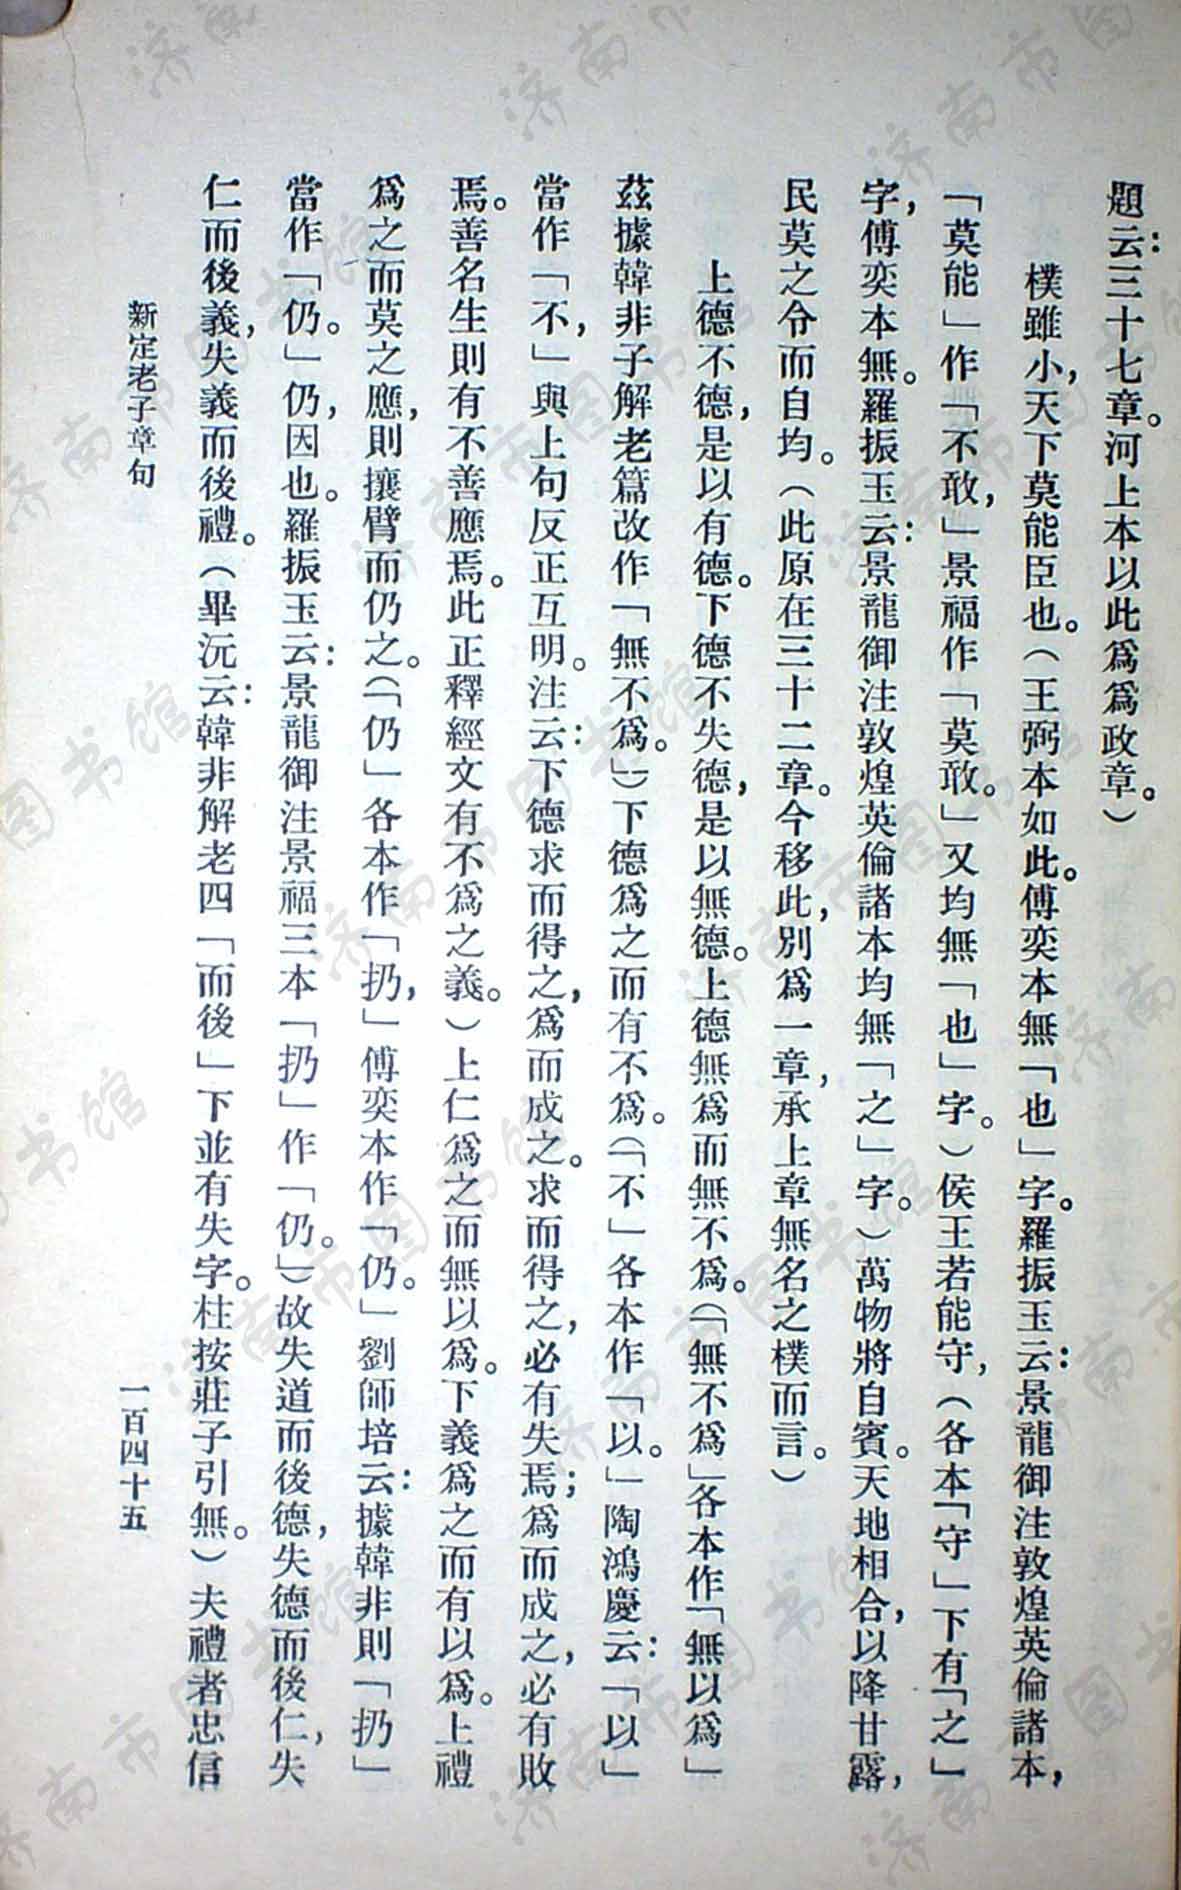 題云：三十七章。河上本以此爲爲政章。）
樸雖小，天下莫能臣也。（王弼本如此。傅奕本無「也」字。羅振玉云：景龍御注敦煌英倫諸本，
「莫能」作「不敢，」景福作「莫敢。」又均無「也」字。）侯王若能守，（各本「守」下有「之」
字，傅奕本無。羅振玉云：景龍御注敦煌英倫諸本均無「之」字。）萬物將自賓。天地相合，以降甘露，
民莫之令而自均。（此原在三十二章。今移此，別爲一章，承上章無名之樸而言。）
上德不德，是以有德。下德不失德，是以無德。上德無爲而無不爲。（「無不爲」各本作「無以爲」
茲據韓非子解老篇改作「無不爲。」）下德爲之而有不爲。（「不」各本作「以。」陶鴻慶云：「以」
當作「不，」與上句反正互明。注云：下德求而得之，爲而成之。求而得之，必有失焉；爲而成之，必有敗
焉。善名生則有不善應焉。此正釋經文有不爲之義。）上仁爲之而無以爲。下義爲之而有以爲。上禮
爲之而莫之應，則攘臂而仍之。（「仍」各本作「扔，」傅奕本作「仍。」劉師培云：據韓非則「扔」
當作「仍。」仍，因也。羅振玉云：景龍御注景福三本「扔」作「仍。」）故失道而後德，失德而後仁，失
仁而後義，失義而後禮。（畢沅云：韓非解老四「而後」下並有失字。柱按莊子引無。）夫禮者忠信
新定老子章句
一百四十五
济南市图书馆